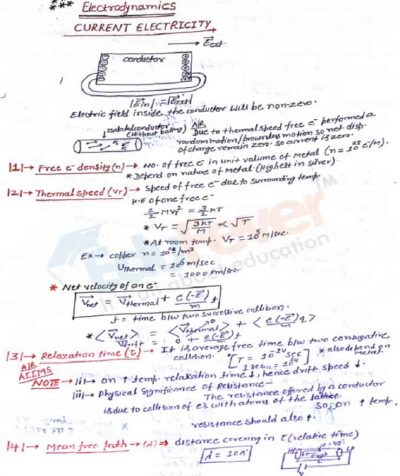 *** Electrodynamics
CURRENT ELECTRICITY
E⃗ext.
conductor
|E⃗in| = |E⃗ext|
Electric field inside the conductor will be non-zero.
Isolated conductor (without battery) AIR Due to thermal speed free e⁻ performed a
random motion/brownian motion so net disp.
of charge remain zero. so current is zero.
|1|→ Free e⁻ density (n) → No. of free e⁻ in unit volume of metal (n = 10²⁸ e⁻/M³)
* Depend on nature of metal (Highest in silver).
|2|→ Thermal speed (VT) → Speed of free e⁻ due to surrounding temp.
K.E of one free e⁻
½ MVT² = 3/2 KT
* VT = √(3KT/M) ∝ √T
* At room temp. VT = 10⁵ M/sec.
Ex → copper n = 10²⁸/m³
Uthermal = 10⁶ m/sec
= 1000 Km/sec
* Net velocity of an e⁻
V⃗net = V⃗thermal + e(-E⃗)/m t
t = time b/w two successive collision.
* <V⃗net> = <V⃗thermal> + <e(-E⃗)/m t>
V⃗drift = 0 + e(-E⃗)/m τ
|3|→ Relaxation time (τ) → It is average free time b/w two conjugative
collision. [τ = 10⁻¹⁴ sec] * also depend on
metal
AIIMS
NOTE → |i|→ on ↑ temp. relaxation time ↓, hence drift speed ↓.
|ii|→ Physical Significance of Resistance –
The resistance offered by a conductor
is due to collision of e⁻s with atoms of the lattice
so, on ↑ temp,
resistance should also ↑.
|4|→ Mean free path → (λ) → distance covering in τ (relative time)
λ = 10 A°